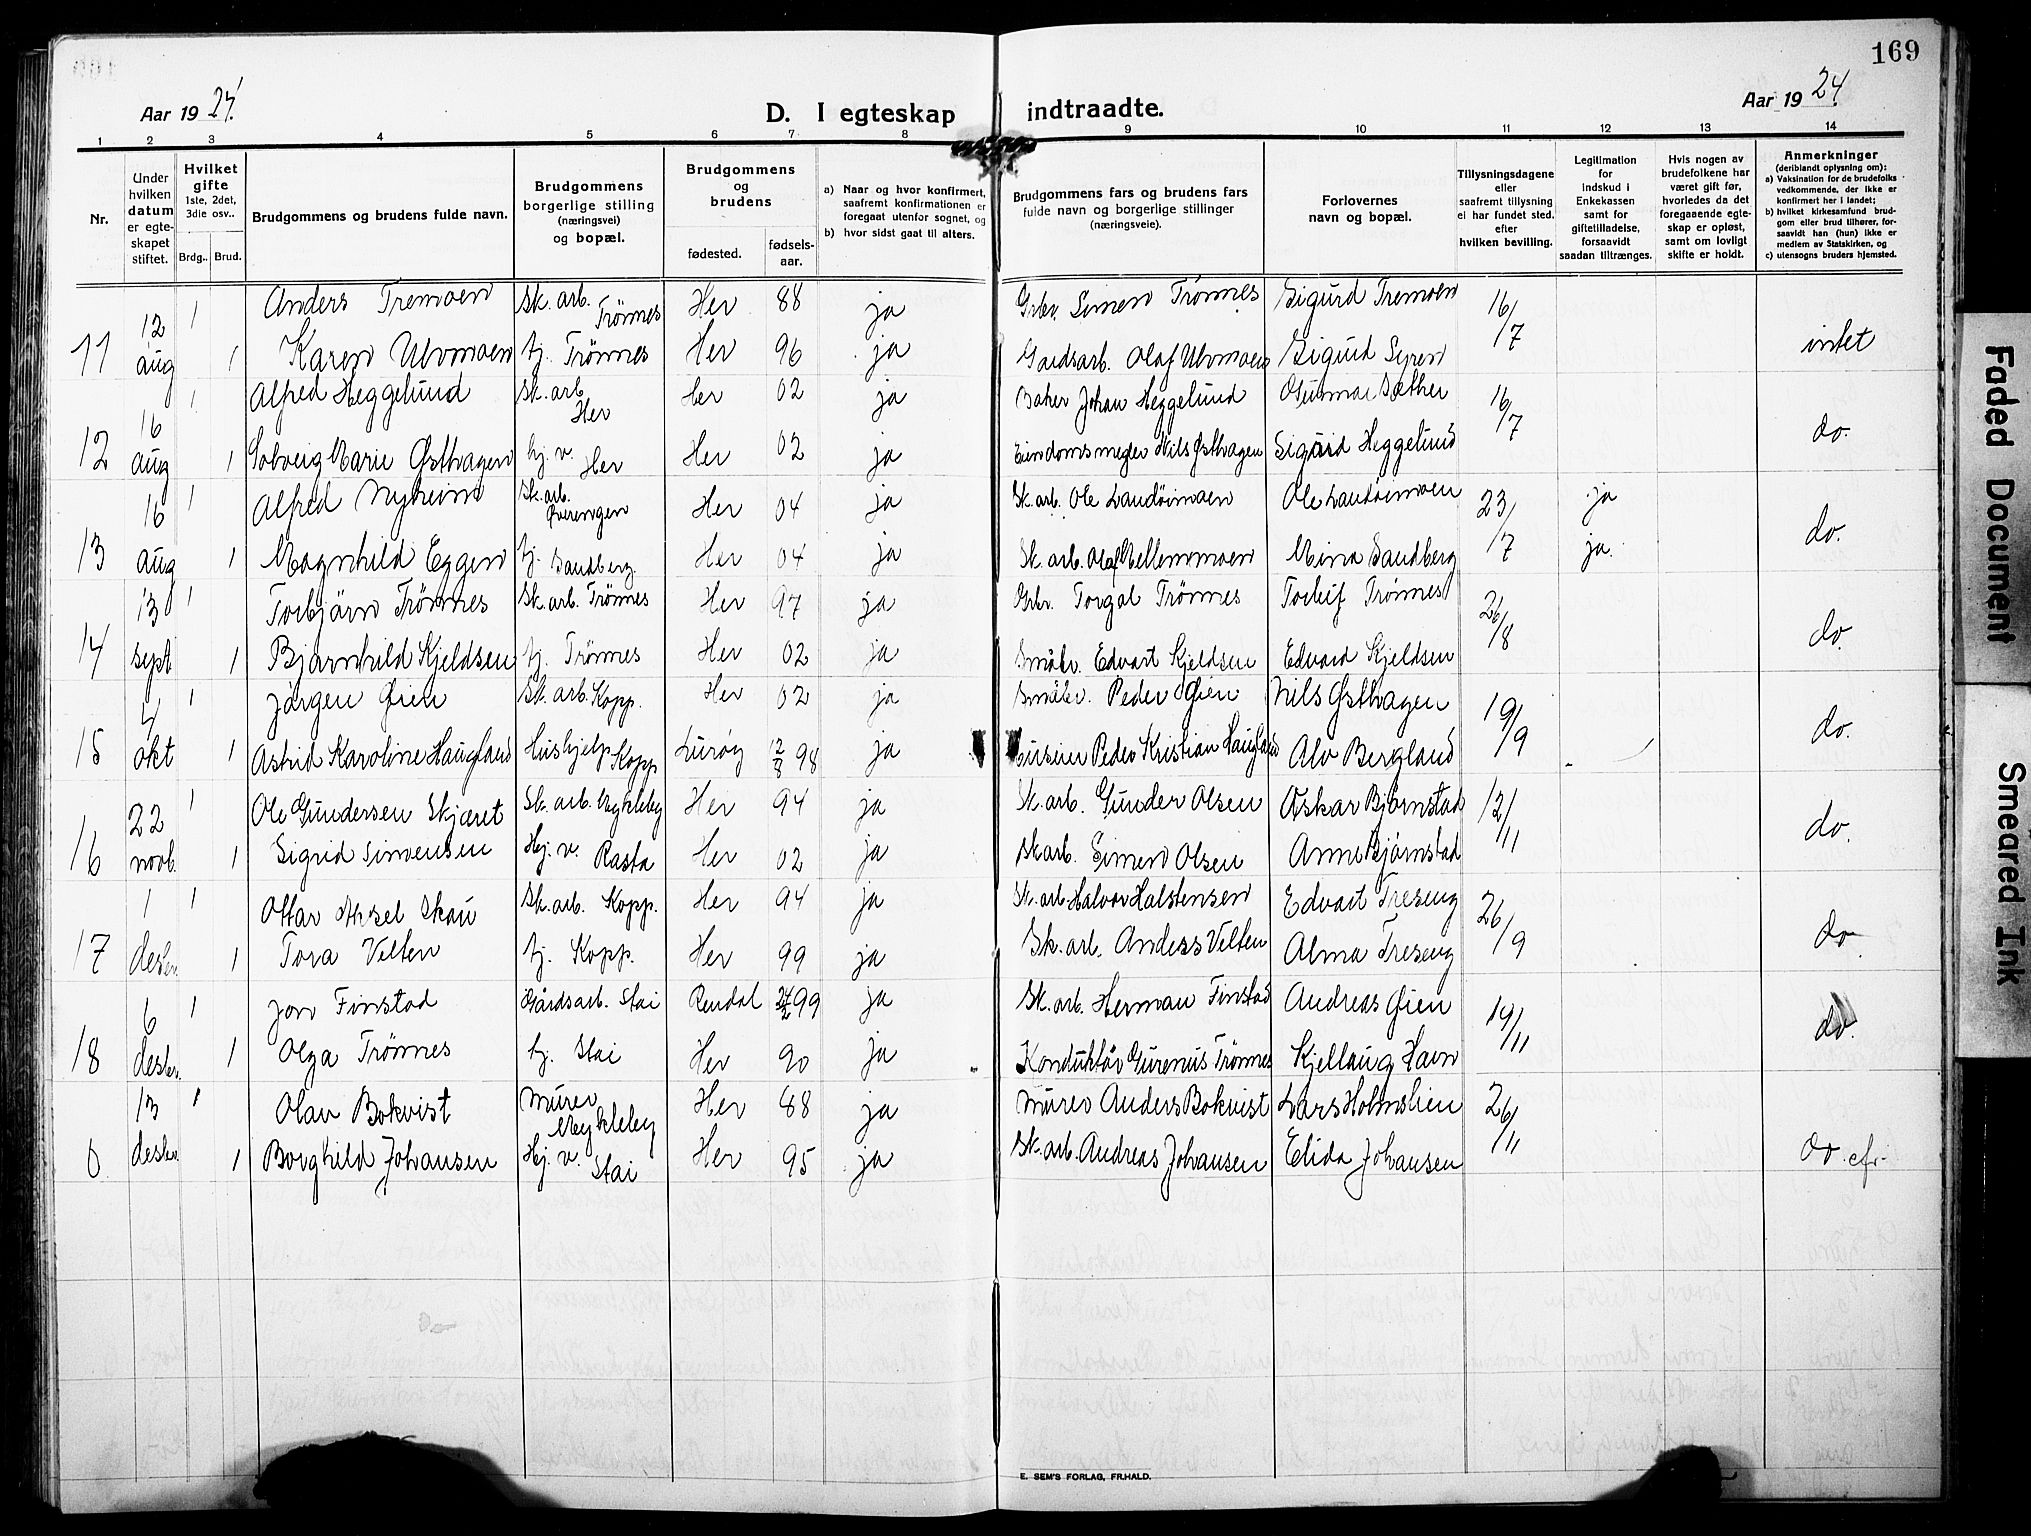 169
Aar 1924. D. I egteskap indtraadte. Aar 1924.
1 2 3 4 5 6 7 8 9 10 11 12 13 14
Nr.
Under hvilken datum er egteskapet stiftet.
Hvilket gifte 1ste, 2det, 3die osv..
Brdg.. Brud.
Brudgommens og brudens fulde navn.
Brudgommens borgerlige stilling (næringsvei) og bopæl.
Brudgommens og brudens
fødested. fødsels-aar.
a) Naar og hvor konfirmert, saafremt konfirmationen er foregaat utenfor sognet, og
b) hvor sidst gaat til alters.
Brudgommens fars og brudens fars fulde navn og borgerlige stillinger (næringsveie).
Forlovernes navn og bopæl.
Tillysningsdagene eller saafremt tillysning ei har fundet sted. efter hvilken bevilling.
Legitimation for indskud i Enkekassen samt for giftetilladelse, forsaavidt saadan tiltrænges.
Hvis nogen av brudefolkene har været gift før, hvorledes da det foregaaende egteskap er opløst, samt om lovligt skifte er holdt.
Anmerkninger (deriblandt oplysning om):
a) Vaksination for de brudefolks vedkommende, der ikke er konfirmert her i landet;
b) hvilket kirkesamfund brudgom eller brud tilhører, forsaavidt han (hun) ikke er medlem av Statskirken, og
c) utensogns bruders hjemsted.
11 12 aug 1 Anders Tremoen Sk. arb. Trönnes Her 88 ja Grbr. Simen Trönnes Sigurd Tremoen 16/7 intet
1 Karen Ulvmoen hj. Trönnes Her 96 ja Gardsarb. Olaf Ulvmoen Sigurd Syren
12 16 aug 1 Alfred Heggelund Sk. arb Her Her 02 ja Baker Johan Heggelund Gunnar Sæther 16/7 do.
1 Solveig Marie Østhagen hj. v. Her Her 02 ja Eiendomsmegler Nils Østhagen Sigurd Heggelund
13 16 aug 1 Alfred Nyheim Sk. arb. Øverengen Her 04 ja Sk. arb. Ole Landöimoen Ole Landöimoen 23/7 ja do.
1 Magnhild Eggen hj. Sandberg. Her 04 ja Sk. arb. Olaf Mellemmoen Mina Sandberg ja.
14 13 sept 1 Torbjörn Trönnes Sk. arb. Trönnes Her 97 ja Grbr. Torgal Trönnes Torleif Trönnes 26/8 do.
1 Bjarnhild Kjeldsen hj. Trönnes Her 02 ja Småbr. Edvart Kjeldsen Edvard Kjeldsen
15 4 okt 1 Jörgen Øien Sk. arb. Kopp. Her 02 ja Småbr. Peder Øien Nils Østhagen 19/9 do.
1 Astrid Karoline Haugland Hushjelp Kopp Luröy 12/8 98 ja Peder Kristian Haugland Alv Bergland
16 22 novb. 1 Ole Gundersen Skjæret Sk. arb. Mykleby Her 94 ja Sk. arb. Gunder Olsen Oskar Bjørnstad 12/11 do.
1 Sigrid Simensen Hj. v. Rasta Her 02 ja Sk arb. Simen Olsen Anne Bjørnstad
17 1 desbr. 1 Ottar Aksel Skau Sk. arb. Kopp. Her 94 ja Sk. arb. Halvor Halstensen Edvart Treseng 26/9 do
1 Tora Velten hj. Kopp. Her 99 ja Sk. arb. Anders Velten Alma Treseng
18 6 desbr. 1 Jon Finstad Gårdsarb. Stai Rendal 24/2 99 ja Sk. arb. Herman Finstad Andreas Øien 19/11 do.
1 Olga Trönnes hj. Stai Her 90 ja Konduktör Gurenus Trönnes Kjellaug Havn
0. 13 desbr. 1 Olav Bokvist Murer Mykleby Her 88 ja Murer Anders Bokvist Lars Holmslien 26/11 do. cfr.
1 Borghild Johansen Hj. v. Stai Her 95 ja Sk. arb. Andreas Johansen Elida Johansen
E. SEM'S FORLAG, FR.HALD.
Faded Document
Smeared Ink